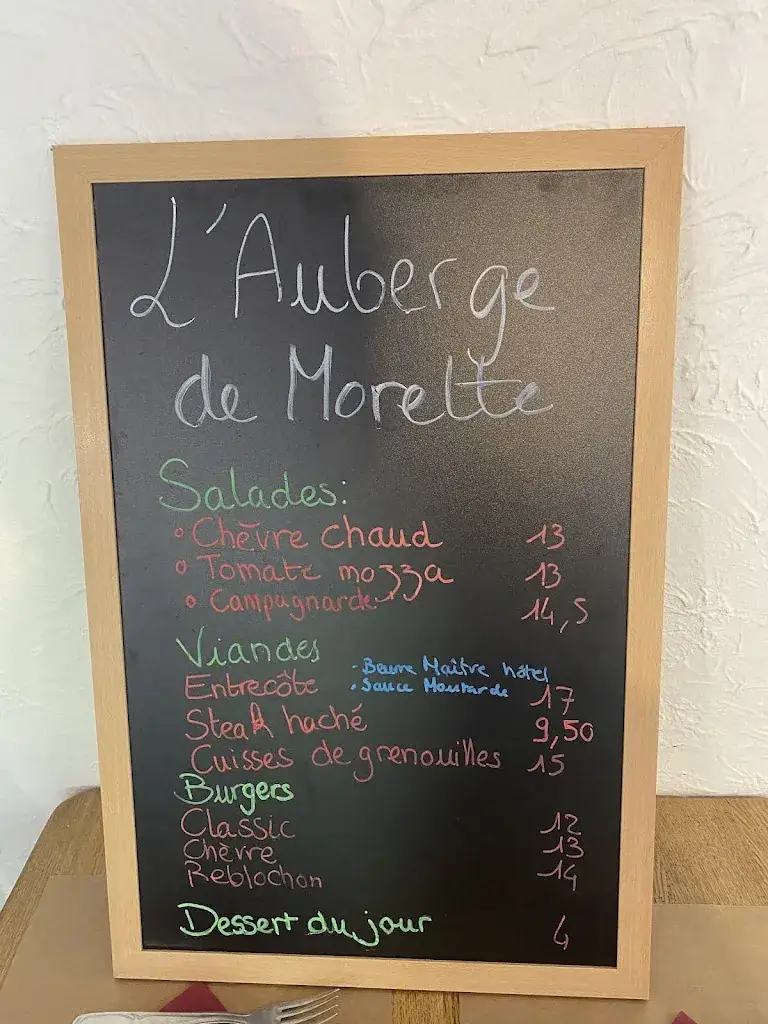 L'Auberge
de Morette
Salades:
• Chèvre chaud 13
• Tomate mozza 13
• Campagnarde 14,5
Viandes
- Beurre Maître hôtel
Entrecôte • Sauce Moutarde 17
Steak haché 9,50
Cuisses de grenouilles 15
Burgers
Classic 12
Chèvre 13
Reblochon 14
Dessert du jour 4